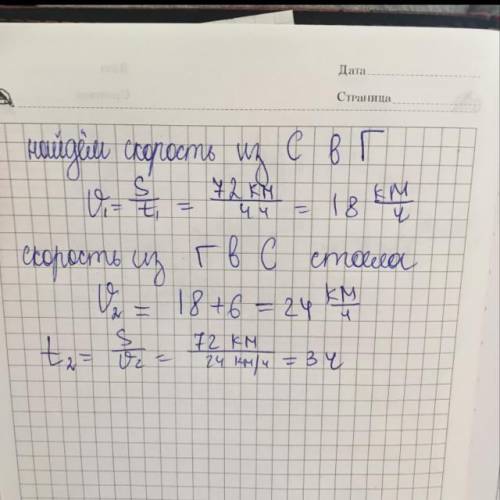 Дата
Страница
найдём скорость из С в Г
V₁ = S/t₁ = 72 км/4ч = 18 км/ч
скорость из Г в С стала
V₂ = 18 + 6 = 24 км/ч
t₂ = S/V₂ = 72 км/24 км/ч = 3ч